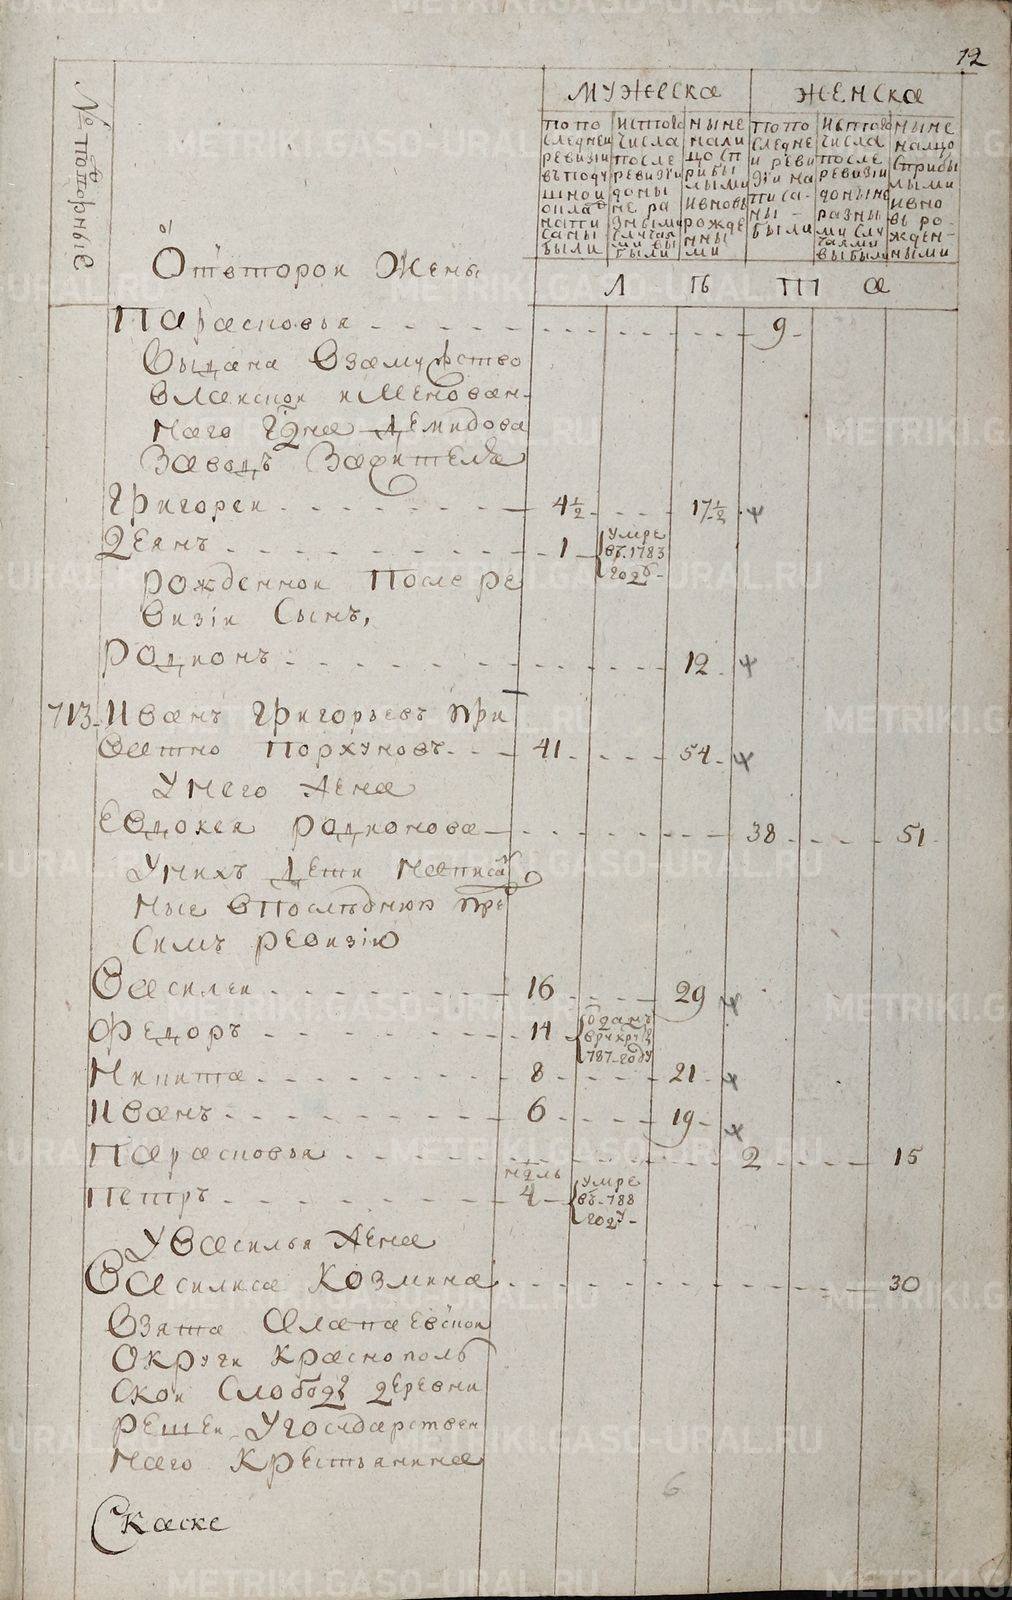 12
№ повторные
МУЖЕСКА
ЖЕНСКА
по последней ревизіи въ подушной оплатъ написаны были
Исптого числа после ревизіи доныне разными случаями выбыли
ныне налицо с прибылыми и вновь рожденными
По последней ревизіи написаны были
Исптого числа после ревизіи доныне разными случаями выбыли
ныне налицо с прибылыми и вновь рожденными
Л ѣ т а
Отвторой Жены
Парасковья - - - - - - 9 -
выдана взамужство
вмеименован-
наго Гдна Демидова
Заводъ Зажителя
Григорей - - - - - 4½ - - - 17½
Деянъ - - - - - 1 - умре въ 1783 году -
рожденной После ре
визіи Сынъ,
Родионъ - - - - - 12
713. Иванъ Григорьевъ При
ватно Порхуновъ - - - 41 - - - 54 -
Унего Жена
Евдокея родионова - - - - 38 - - - 51
Унихъ Дети написа
ные впоследнюю пре
Симъ ревизію
Василеи - - - - - 16 - - - 29
Федоръ - - - - - 14 - отданъ врекруты 787 году
Никита - - - - - 8 - - - 21 -
Иванъ - - - - - 6 - - - 19 -
Парасковья - - - - - 2 - - - 15
Петръ - - - - - 4 ндль - умре въ 788 году -
УВасилья Жена
Василиса Козмина - - - - - 30
Взята Алапаевской
Округи Краснополь
Ской Слободы деревни
решеи Угосударствен
наго Крестьянина
Скаске
6
METRIKI.GASO-URAL.RU